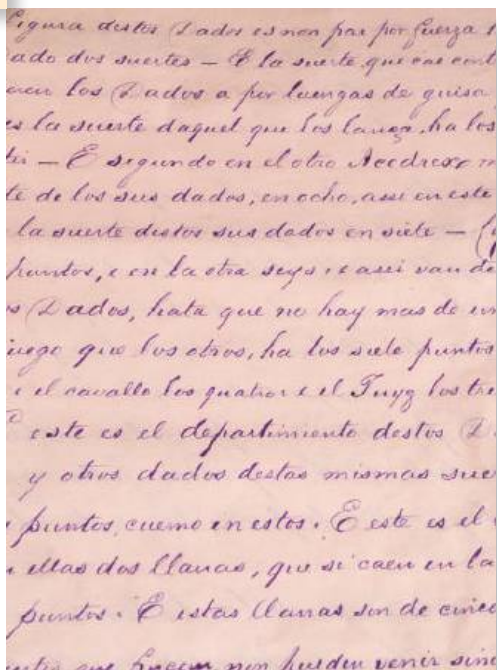 figura destos Dados es non par por fuerza
dado dos suertes — E la suerte que cae
los Dados a por luengas de guisa
es la suerte daquel que los lança, ha los
— E segundo en el otro Acedrex
de los sus dados, en ocho, assi en este
la suerte destos sus dados en siete —
puntos, e en la otra seys, e assi van
Dados, hata que no hay mas de un
juego que los otros, ha los siete puntos
e el cavallo los quatro e el Juyz los tre
este es el departimiento destos D
y otros dados destas mismas sue
puntos, cuemo en estos. E este es el
ellas dos llanas, que si caen en la
puntos. E estas llanas son de cinco
que hacen non pueden venir sino